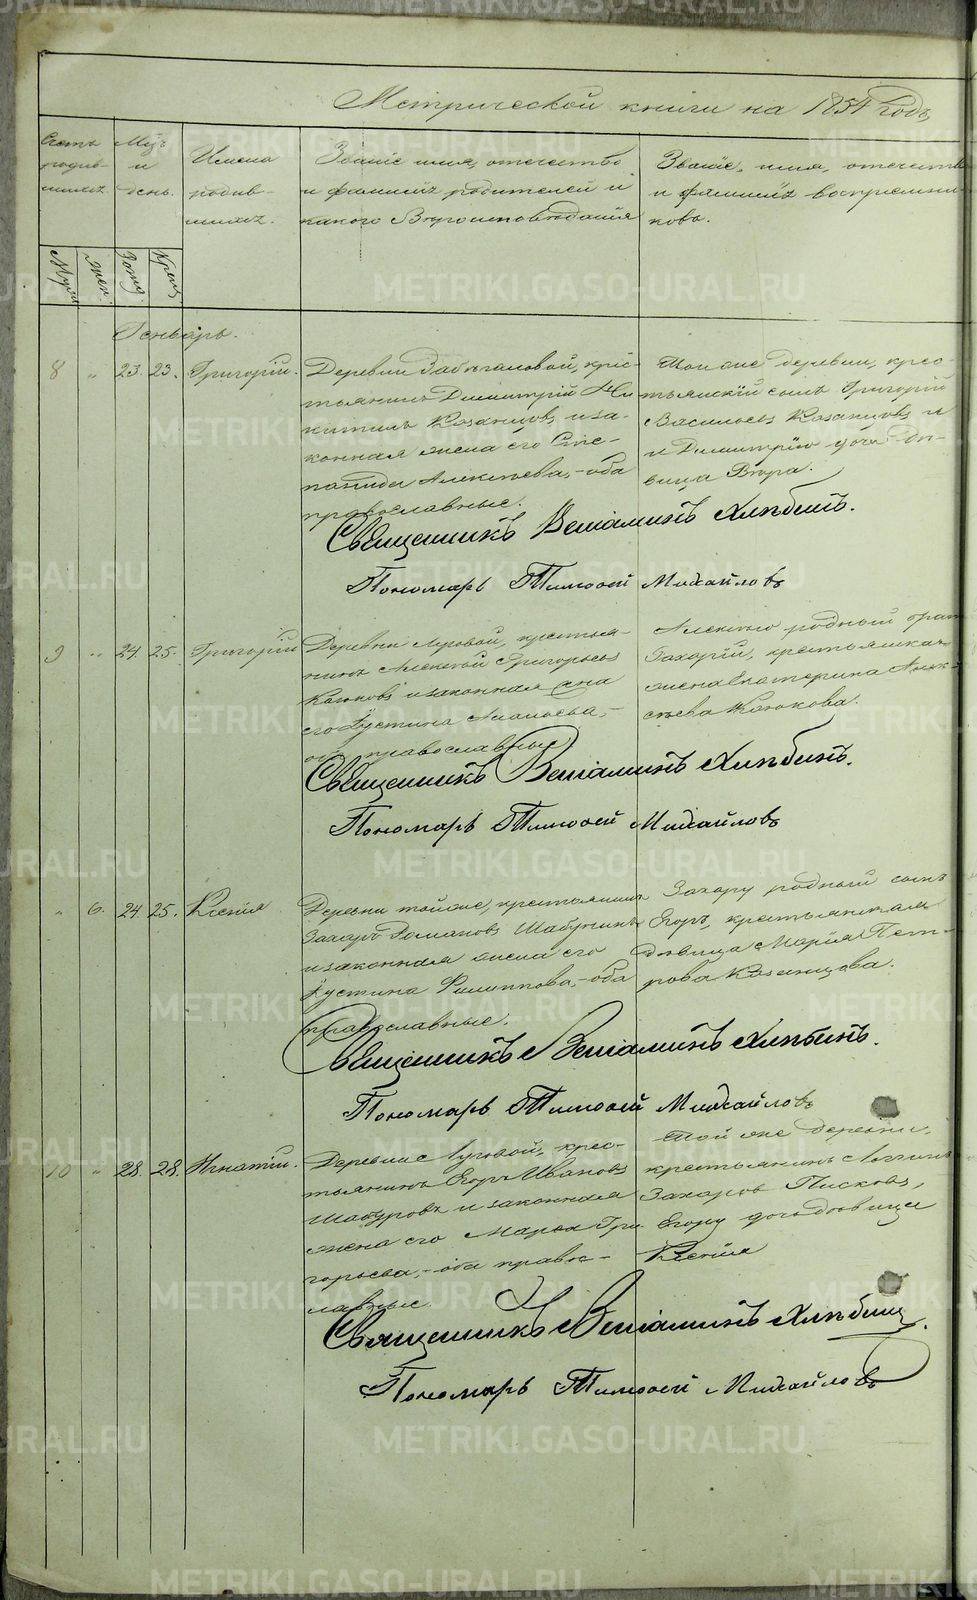 Метрической книги на 1851 годъ
Счетъ родив-шихся.
Муж.
Жен.
Мѣс. и день.
Рожд
Крещ
Имена родив-шихся.
Званіе имя, отчество
и фамилія родителей и
какого Вѣроисповѣданія
Званіе, имя, отчество
и фамилія воспріемни-
ковъ.
Генварь.
8 „ 23. 23. Григорій.
Деревни крес-
тьянинъ Димитрій Ни
китинъ Казанцовъ, и за-
конная жена его Сте-
панида Алексѣева, - оба
православные.
Той же деревни, крес-
тьянскій сынъ Григорій
Васильевъ Казанцовъ, и
и Димитрію дочь дѣ-
вица Вѣра.
Священникъ Веніаминъ Хлѣбинъ.
Пономарь Тимоѳей Михайловъ
9 „ 24. 25. Григорій
Деревни Луговой, крестья-
нинъ Алексѣй Григорьевъ
и законная жена
его Іустина
православные
Алексѣю родный брат
Захарій, крестьянская
жена Екатерина Алек-
сѣева
Священникъ Веніаминъ Хлѣбинъ.
Пономарь Тимоѳей Михайловъ
„ 6. 24. 25. Ксенія
Деревни тойже, крестьянинъ
Захаръ Романовъ Шабуринъ
и законная жена его
Іустина Филиппова, - оба
православные.
Захару родной сынъ
Егоръ, крестьянская
дѣвица Марія Пет-
рова Казанцова.
Священникъ Веніаминъ Хлѣбинъ.
Пономарь Тимоѳей Михайловъ
10 „ 28. 28. Игнатій.
Деревни Луговой, крес-
тьянинъ Егоръ Ивановъ
Шабуровъ и законная
жена его Марья Гри
горьева, - оба правос-
лавные.
Той же деревни,
крестьянинъ Логгинъ
Захаровъ Писковъ,
Егору дочь дѣвица
Ксенія
Священникъ Веніаминъ Хлѣбинъ.
Пономарь Тимоѳей Михайловъ
METRIKI.GASO-URAL.RU